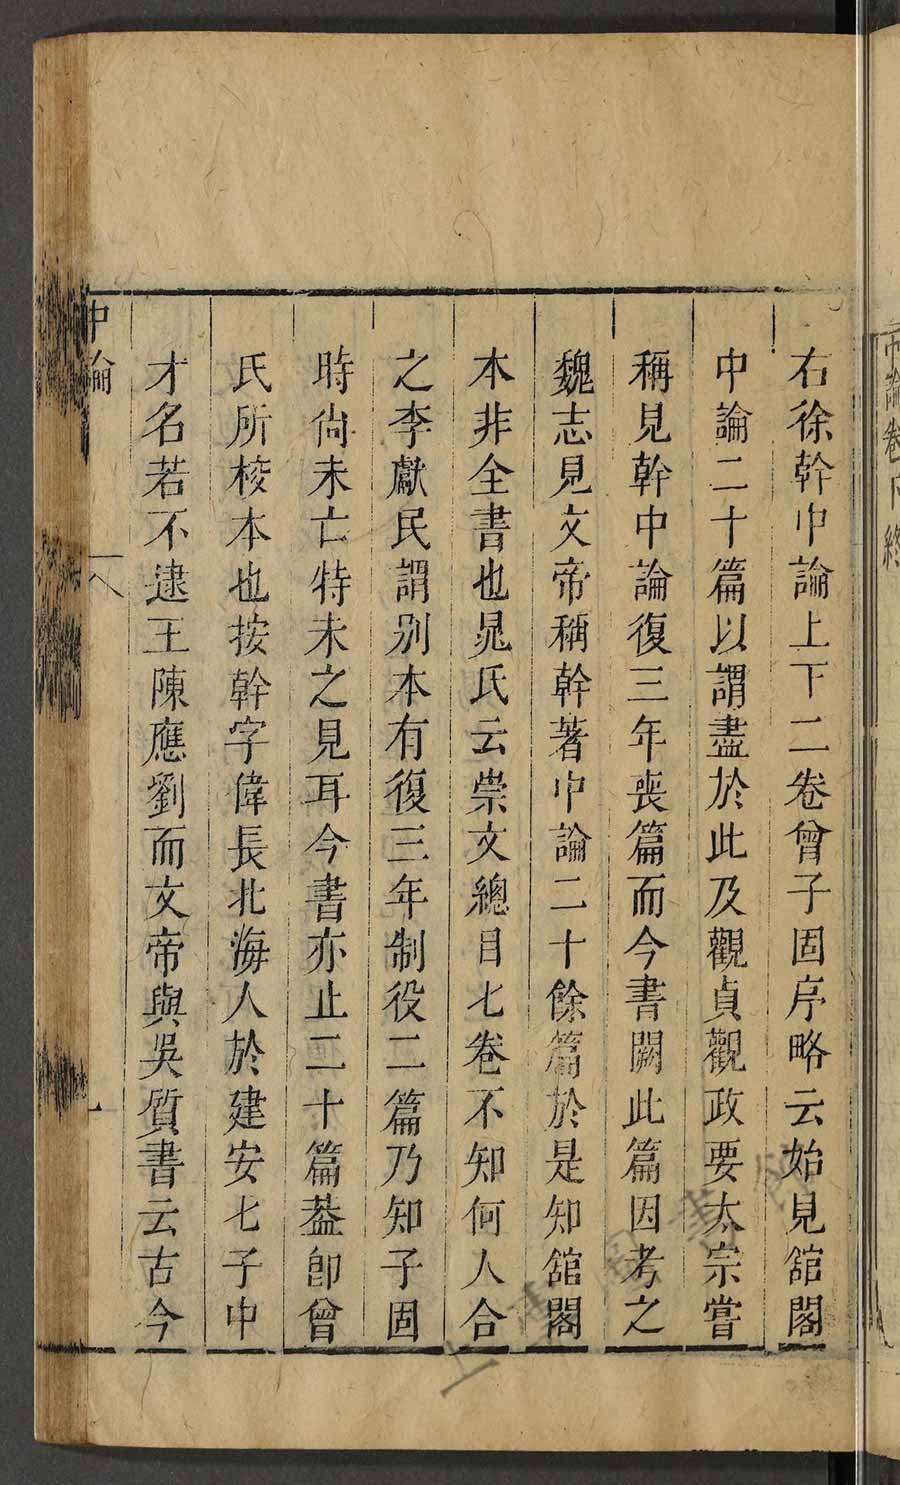 右徐幹中論上下二卷曾子固序略云始見舘閣
中論二十篇以謂盡於此及觀貞觀政要太宗嘗
稱見幹中論復三年喪篇而今書闕此篇因考之
魏志見文帝稱幹著中論二十餘篇於是知舘閣
本非全書也晁氏云崇文總目七卷不知何人合
之李獻民謂别本有復三年制役二篇乃知子固
時尙未亡特未之見耳今書亦止二十篇葢卽曾
氏所校本也按幹字偉長北海人於建安七子中
才名若不逮王陳應劉而文帝與吳質書云古今
中論